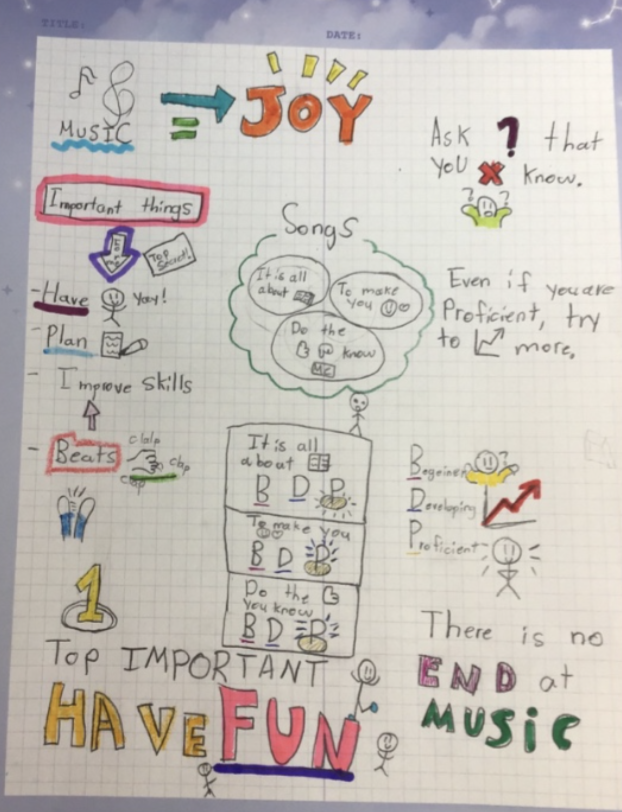 TITLE:
DATE:
MUSIC
=
JOY
Ask ? that
you know.
Important things
Top
Secret!
- Have Yay!
- Plan
- Improve skills
- Beats
clalp
clap
clap
Songs
It is all
about
To make
you
Do the
know
Me
Even if you are
Proficient, try
to more.
It is all
about
B D P
To make you
B D P
Do the
you know
B D P
Begeiner
?
Developing
Proficient
1
Top IMPORTANT
HAVE FUN
There is no
END at
MUSic